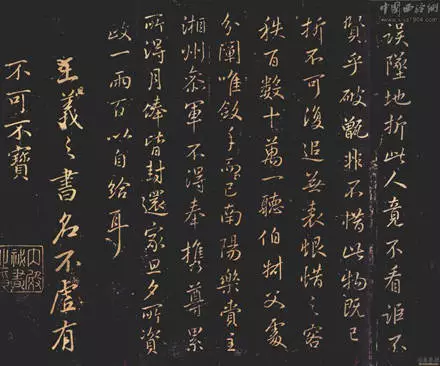 誤墜地折此人竟不看詎不
賀乎破甑非不惜此物既已
折不可復追無表恨惜之容
秩百數十萬一聽伯樹父處
分闔唯斂手而已南陽樂賁主
湘州參軍不得奉攜尊累
所得月俸皆封還家旦夕所資
政一兩百以自給耳
王羲之書名不虛有
不可不寶